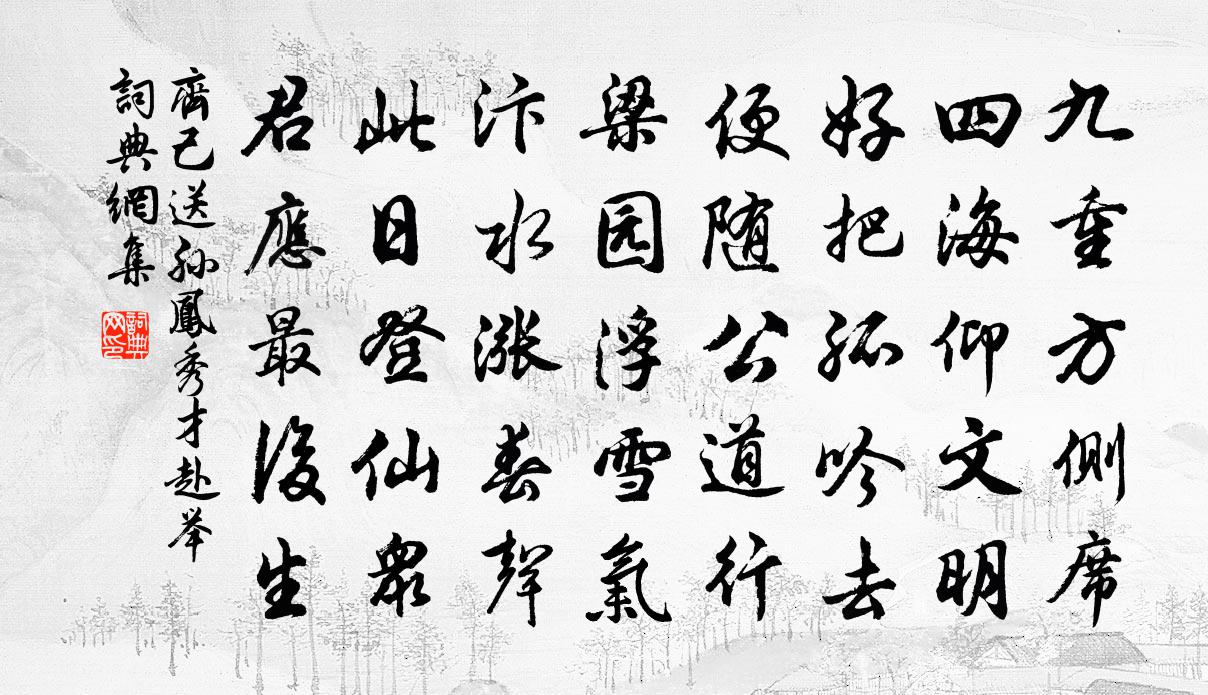 九重方侧席
四海仰文明
好把孤吟去
便随公道行
梁园浮雪氣
汴水漲春聲
此日登仙衆
君應最後生
齊己送孙鳳秀才赴举
詞典網集
詞典网印